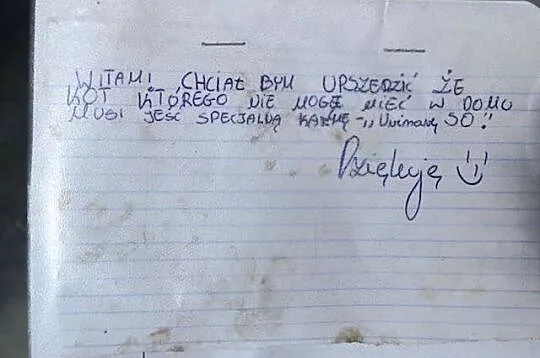 WITAM! CHCIAŁ BYM UPSZEDZIĆ ŻE
KOT KTÓREGO NIE MOGĘ MIEĆ W DOMU
MUSI JEŚĆ SPECJALNĄ KARMĘ - „ SO!
Dziękuję